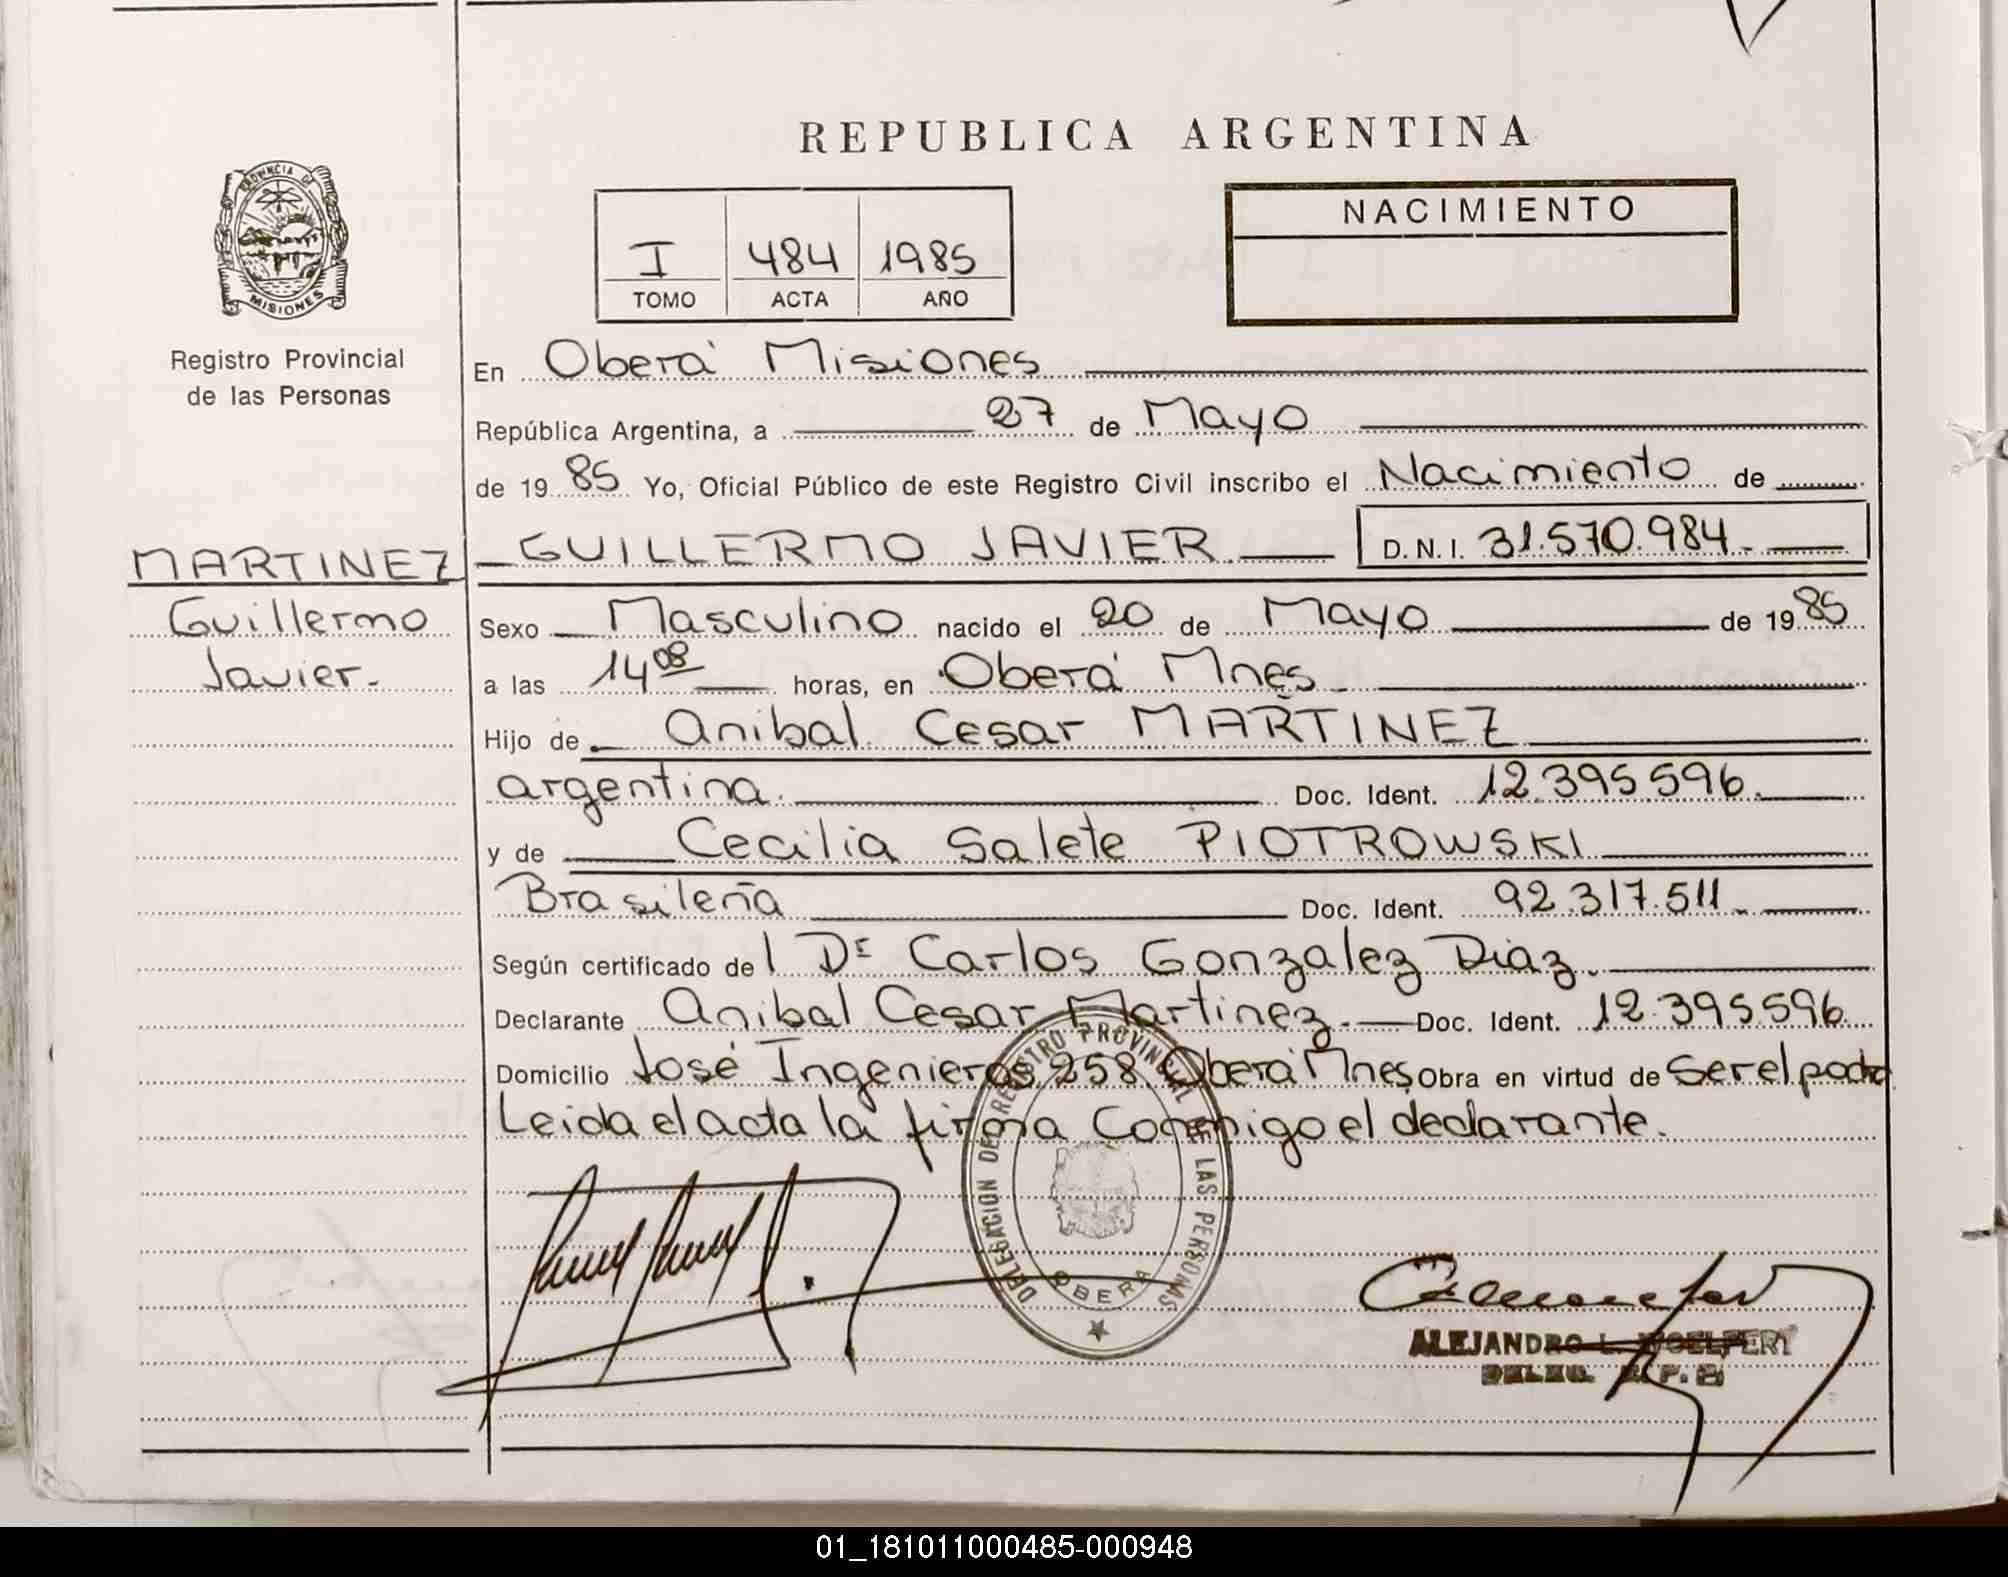 REPUBLICA ARGENTINA
PROVINCIA DE
MISIONES
Registro Provincial
de las Personas
I 484 1985
TOMO ACTA AÑO
NACIMIENTO
En Oberá Misiones
República Argentina, a 27 de Mayo
de 1985 Yo, Oficial Público de este Registro Civil inscribo el Nacimiento de
MARTINEZ GUILLERMO JAVIER. D.N.I. 31.570.984.
Guillermo Sexo Masculino nacido el 20 de Mayo de 1985
Javier. a las 14 08 horas, en Oberá Mnes.
Hijo de Anibal Cesar MARTINEZ
argentina. Doc. Ident. 12.395.596.
y de Cecilia Salete PIOTROWSKI
Brasileña Doc. Ident. 92.317.511.
Según certificado del Dr Carlos Gonzalez Diaz.
Declarante Anibal Cesar Martinez. Doc. Ident. 12.395.596.
Domicilio José Ingenieros 258. Oberá Mnes Obra en virtud de Ser el padre
Leida el acta la firma Conmigo el declarante.
DELEGACION DE REGISTRO PROVINCIAL DE LAS PERSONAS
OBERA
ALEJANDRO L. WOELFERT
DELEG. R. P. P.
01_181011000485-000948